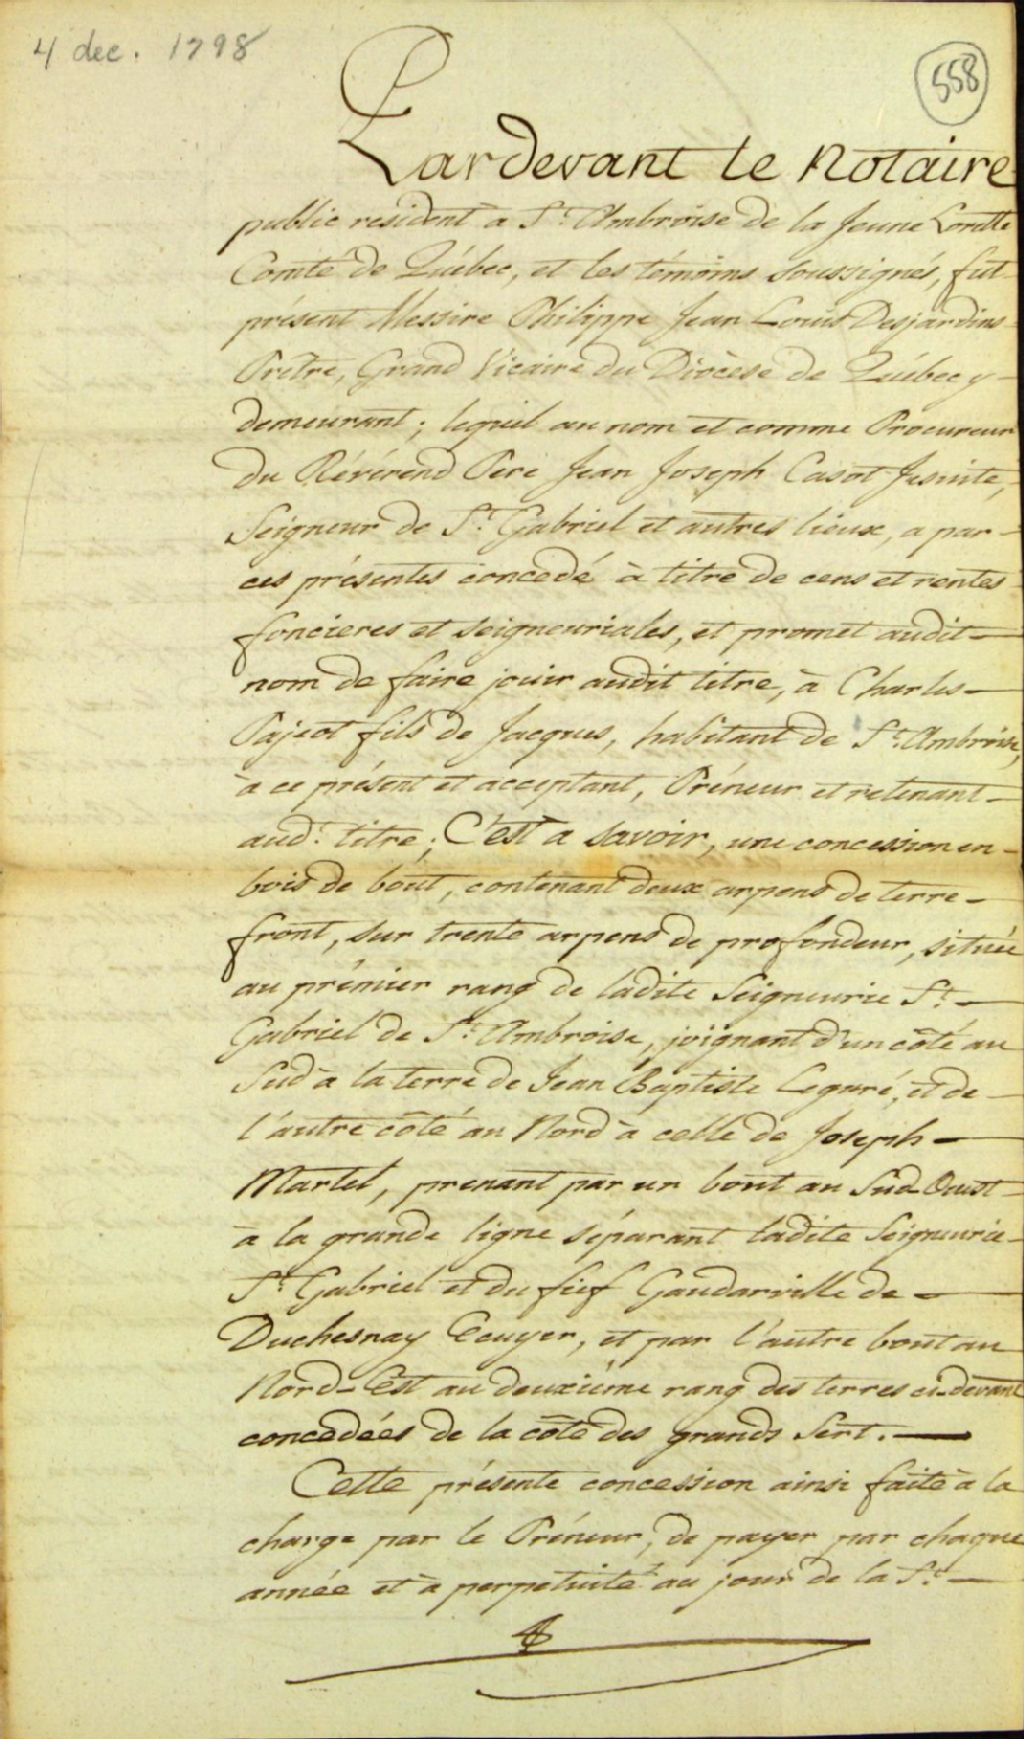 4 dec. 1798
558
Pardevant le Notaire
public resident à St. Ambroise de la Jeune Lorette
Comté de Québec, et les témoins soussignés, fut
présent Messire Philippe Jean Louis Desjardins
Prêtre, Grand Vicaire du Diocèse de Québec y
demeurant; lequel au nom et comme Procureur
du Révérend Pere Jean Joseph Casot Jesuite,
Seigneur de St. Gabriel et autres lieux, a par
ces présentes concedé à titre de cens et rentes
foncieres et seigneuriales, et promet audit
nom de faire jouir audit titre, à Charles
Pajeot fils de Jacques, habitant de St. Ambroise,
à ce présent et acceptant, Préneur et retenant
aud. titre; C'est a savoir, une concession en
bois de bout, contenant deux arpens de terre
front, sur trente arpens de profondeur, située
au prémier rang de ladite Seigneurie St.
Gabriel de St. Ambroise, joignant d'un côté au
Sud à la terre de Jean Baptiste Leguré, et de
l'autre côté au Nord à celle de Joseph
Martel, prenant par un bout au Sud-Ouest
à la grande ligne séparant ladite Seigneurie
St. Gabriel et du fief Gaudarville de
Duchesnay Ecuyer, et par l'autre bout au
Nord-Est au deuxième rang des terres ci-devant
concedées de la côte des grands Sert.
Cette présente concession ainsi faite à la
charge par le Préneur, de payer par chaque
année et à perpetuité au jour de la St.